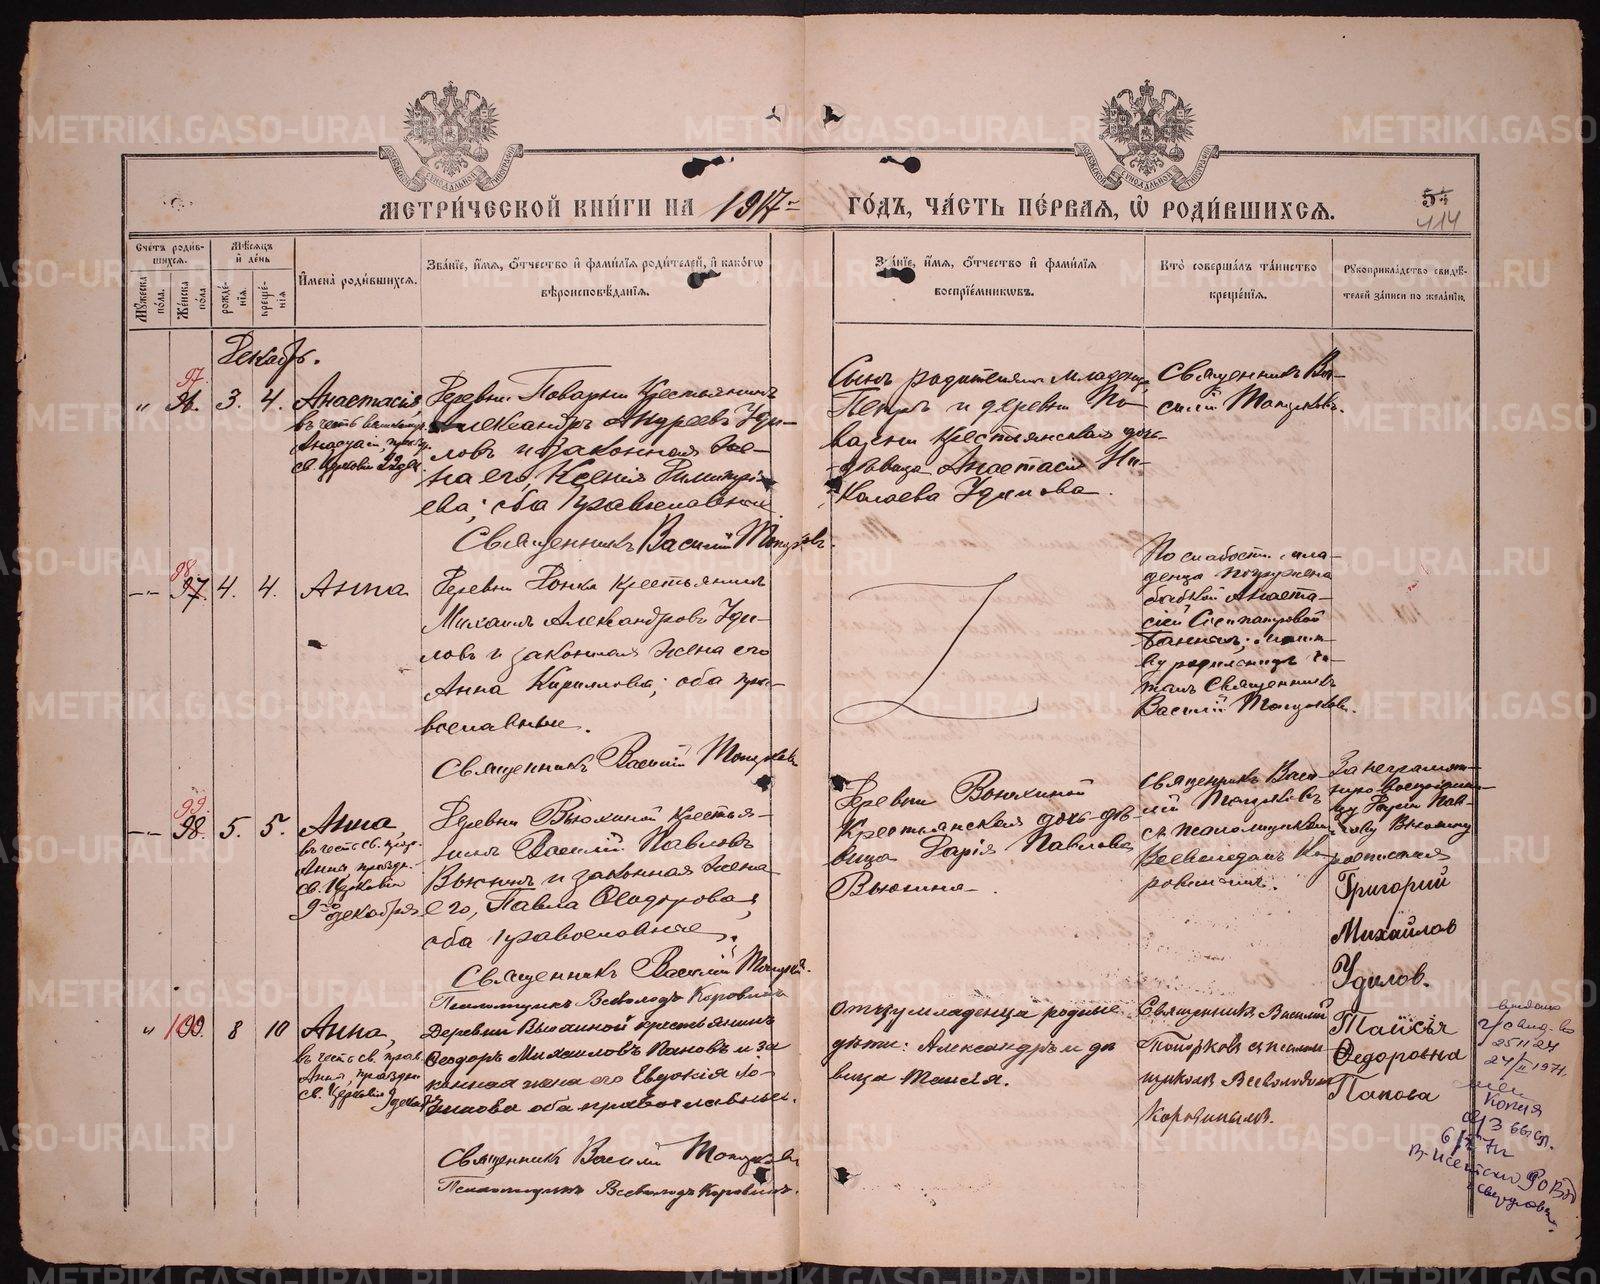 МЕТРИ́ЧЕСКОЙ КНИ́ГИ НА 1917 ГО́ДЪ, ЧА́СТЬ ПЕ́РВАЯ, Ѽ РОДИ́ВШИХСЯ.
414
Счетъ роди́в-
шихся.
Му́жеска по́ла.
Же́нска по́ла.
Мѣ́сяцъ
и де́нь
рожде́-
нія.
креще́-
нія
Имена̀ роди́вшихся.
Зва́ніе, и́мя, о́тчество и фами́лія роди́телей, и како́гѡ
вѣроисповѣ́данія.
Зва́ніе, и́мя, о́тчество и фами́лія
воспрїе́мникѡвъ.
Кто̀ соверша́лъ та́инство
креще́нія.
Рукоприкла́дство свидѣ́-
телей за́писи по жела́нію.
Декабрь.
97
96. 3. 4.
Анастасія,
Деревни Поварни Крестьянинъ
Александръ Андреевъ Уди-
ловъ и законная же-
на его, Ксенія Димитрі-
ева; оба православные
Священникъ Василій Топорковъ.
Сынъ родителя младенца
Петръ и деревни По-
варни крестьянская дочь
дѣвица Анастасія Ни-
колаева Удилова.
Священникъ Ва-
силій Топорковъ.
98
97. 4. 4.
Анна
Михаилъ Александровъ Уди-
ловъ и законная жена его
Анна Кириллова; оба пра-
вославные.
Священникъ Василій Топорковъ
По слабости мла-
денца погружена
бабкой Анаста-
сіей
Священникъ
Василій Топорковъ.
99.
98. 5. 5.
Анна,
въ честь св. прор.
Анны, праздн.
св. Церковію
9го декабря
Деревни Вьюхиной Крестья-
нинъ Василій Павловъ
Вьюхинъ и законная жена
его, Павла Ѳеодорова,
оба православные.
Священникъ Василій Топорковъ.
Псаломщикъ Всеволодъ Коровинъ
Деревни Вьюхиной
Крестьянская дочь дѣ-
вица Дарія Павлова
Вьюхина.
Священникъ Васи-
лій Топорковъ
съ псаломщикомъ
Всеволодомъ Ко-
ровинымъ.
За неграмот-
Вьюхину
росписался
Григорий
Михайлов
Удилов.
100. 8 10
Анна,
въ честь св. прав.
Анны, праздн.
св. Церковію 9 декабря
Деревни Вьюхиной крестьянинъ
Ѳеодоръ Михаиловъ Пановъ и за
конная жена его Евдокія Ло-
гинова оба православные.
Священникъ Василій Топорковъ
Псаломщикъ Всеволодъ Коровинъ.
Отцу младенца родные
дѣти: Александръ и дѣ
вица Таисія.
Священникъ Василій
Топорковъ съ псалом
щикомъ Всеволодомъ
Коровинымъ.
Таисья
Ѳедоровна
Панова
выдано
24/II 1971г.
Копия
METRIKI.GASO-URAL.RU